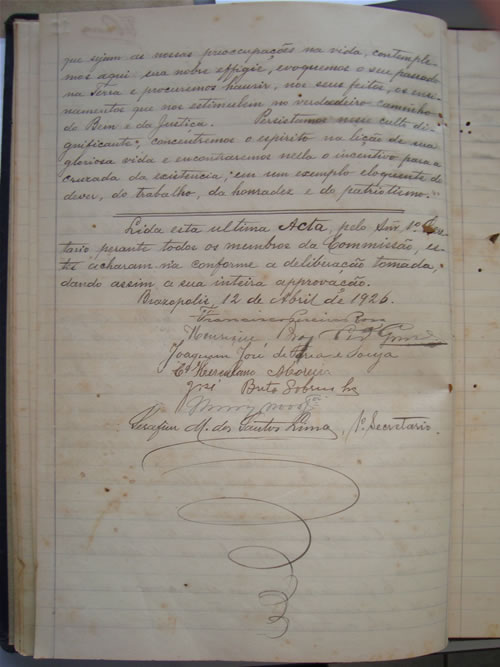 que sejam as nossas preoccupações na vida, contemple-
mos aqui sua nobre effigie, evoquemos o seu passado
na Terra e procuremos haurir, nos seus feitos, os ensi-
namentos que nos estimulem no verdadeiro caminho
do Bem e da Justiça. Persistamos nesse culto di-
gnificante; concentremos o espirito na lição de sua
gloriosa vida e encontraremos nella o incentivo para a
cruzada da existencia, em um exemplo eloquente de
dever, do trabalho, da honradez e do patriotismo.
Lida esta ultima Acta, pelo Snr. 1º Secre-
tario, perante todos os membros da Commissão, es-
tes acharam-na conforme a deliberação tomada,
dando assim a sua inteira approvação.
Brazopolis, 12 de Abril de 1926.
Francisco Pereira Rosa
Henrique Braz
Joaquim José de Faria e Souza
Herculano
José Brito Sobrinho
Serafim M. dos Santos Lima, 1º Secretario.